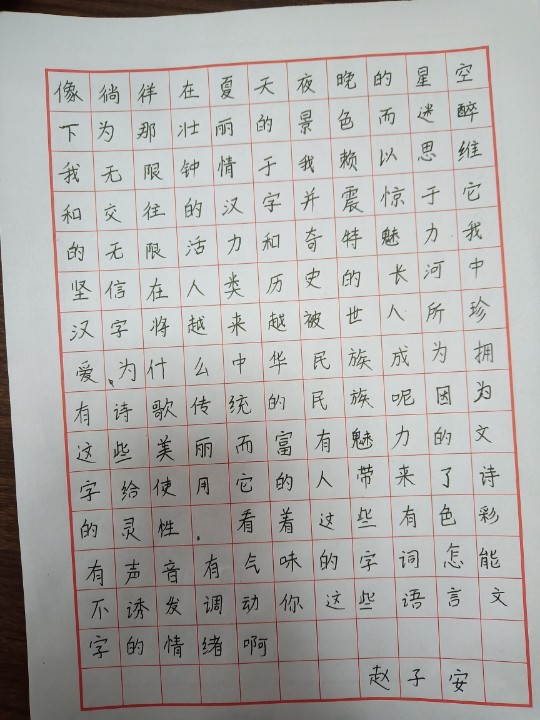 像徜徉在夏天夜晚的星空
下为那壮丽的景色而迷醉
我无限钟情于我赖以思维
和交往的汉字并震惊于它
的无限活力和奇特魅力我
坚信在人类历史的长河中
汉字将越来越被世人所珍
爱、为什么中华民族成为拥
有诗歌传统的民族呢因为
这些美丽而富有魅力的文
字给使用它的人带来了诗
的灵性.看着这些有色彩
有声音有气味的字词怎能
不诱发调动你这些语言文
字的情绪啊
赵子安